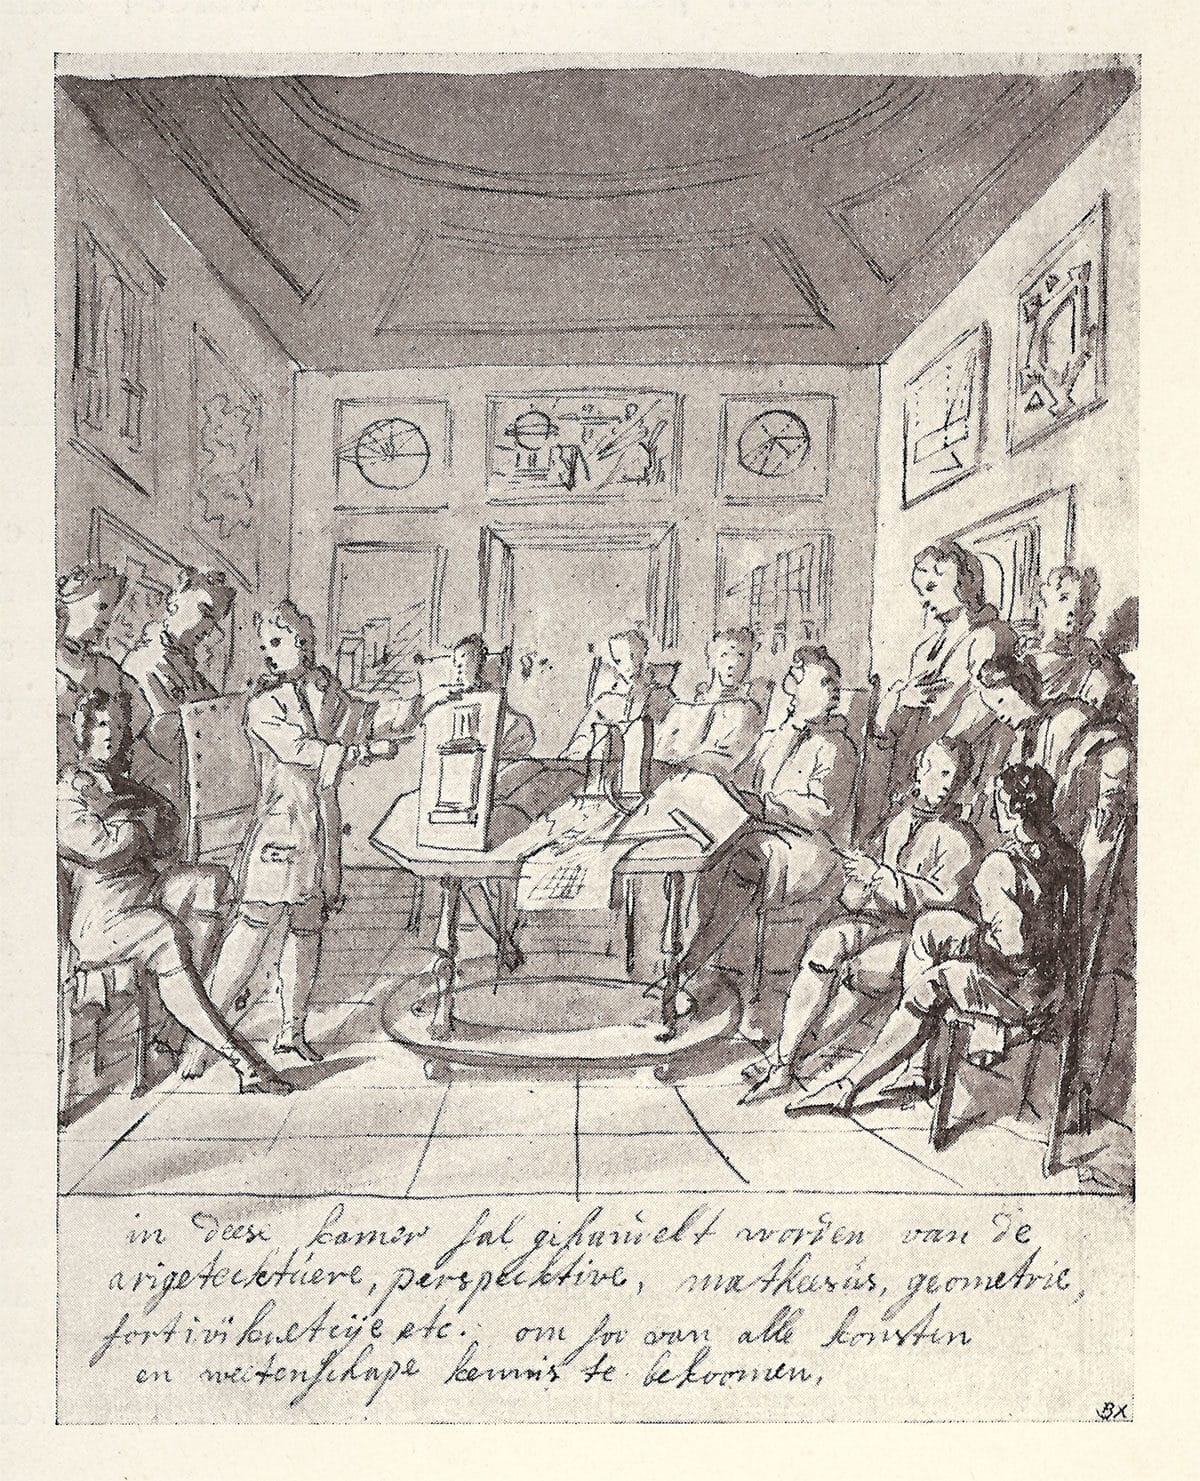 in deese kamer sal gehandelt worden van de
arigetecktuere, perspecktive, matheesus, geometrie,
fortivikuetije etc. om soo van alle konsten
en weetenschape kennis te bekoomen,
BX